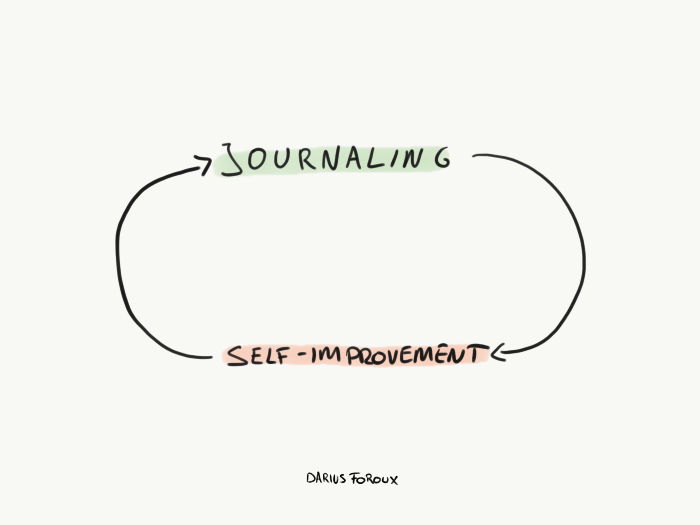 JOURNALING
SELF-IMPROVEMENT
DARIUS FOROUX